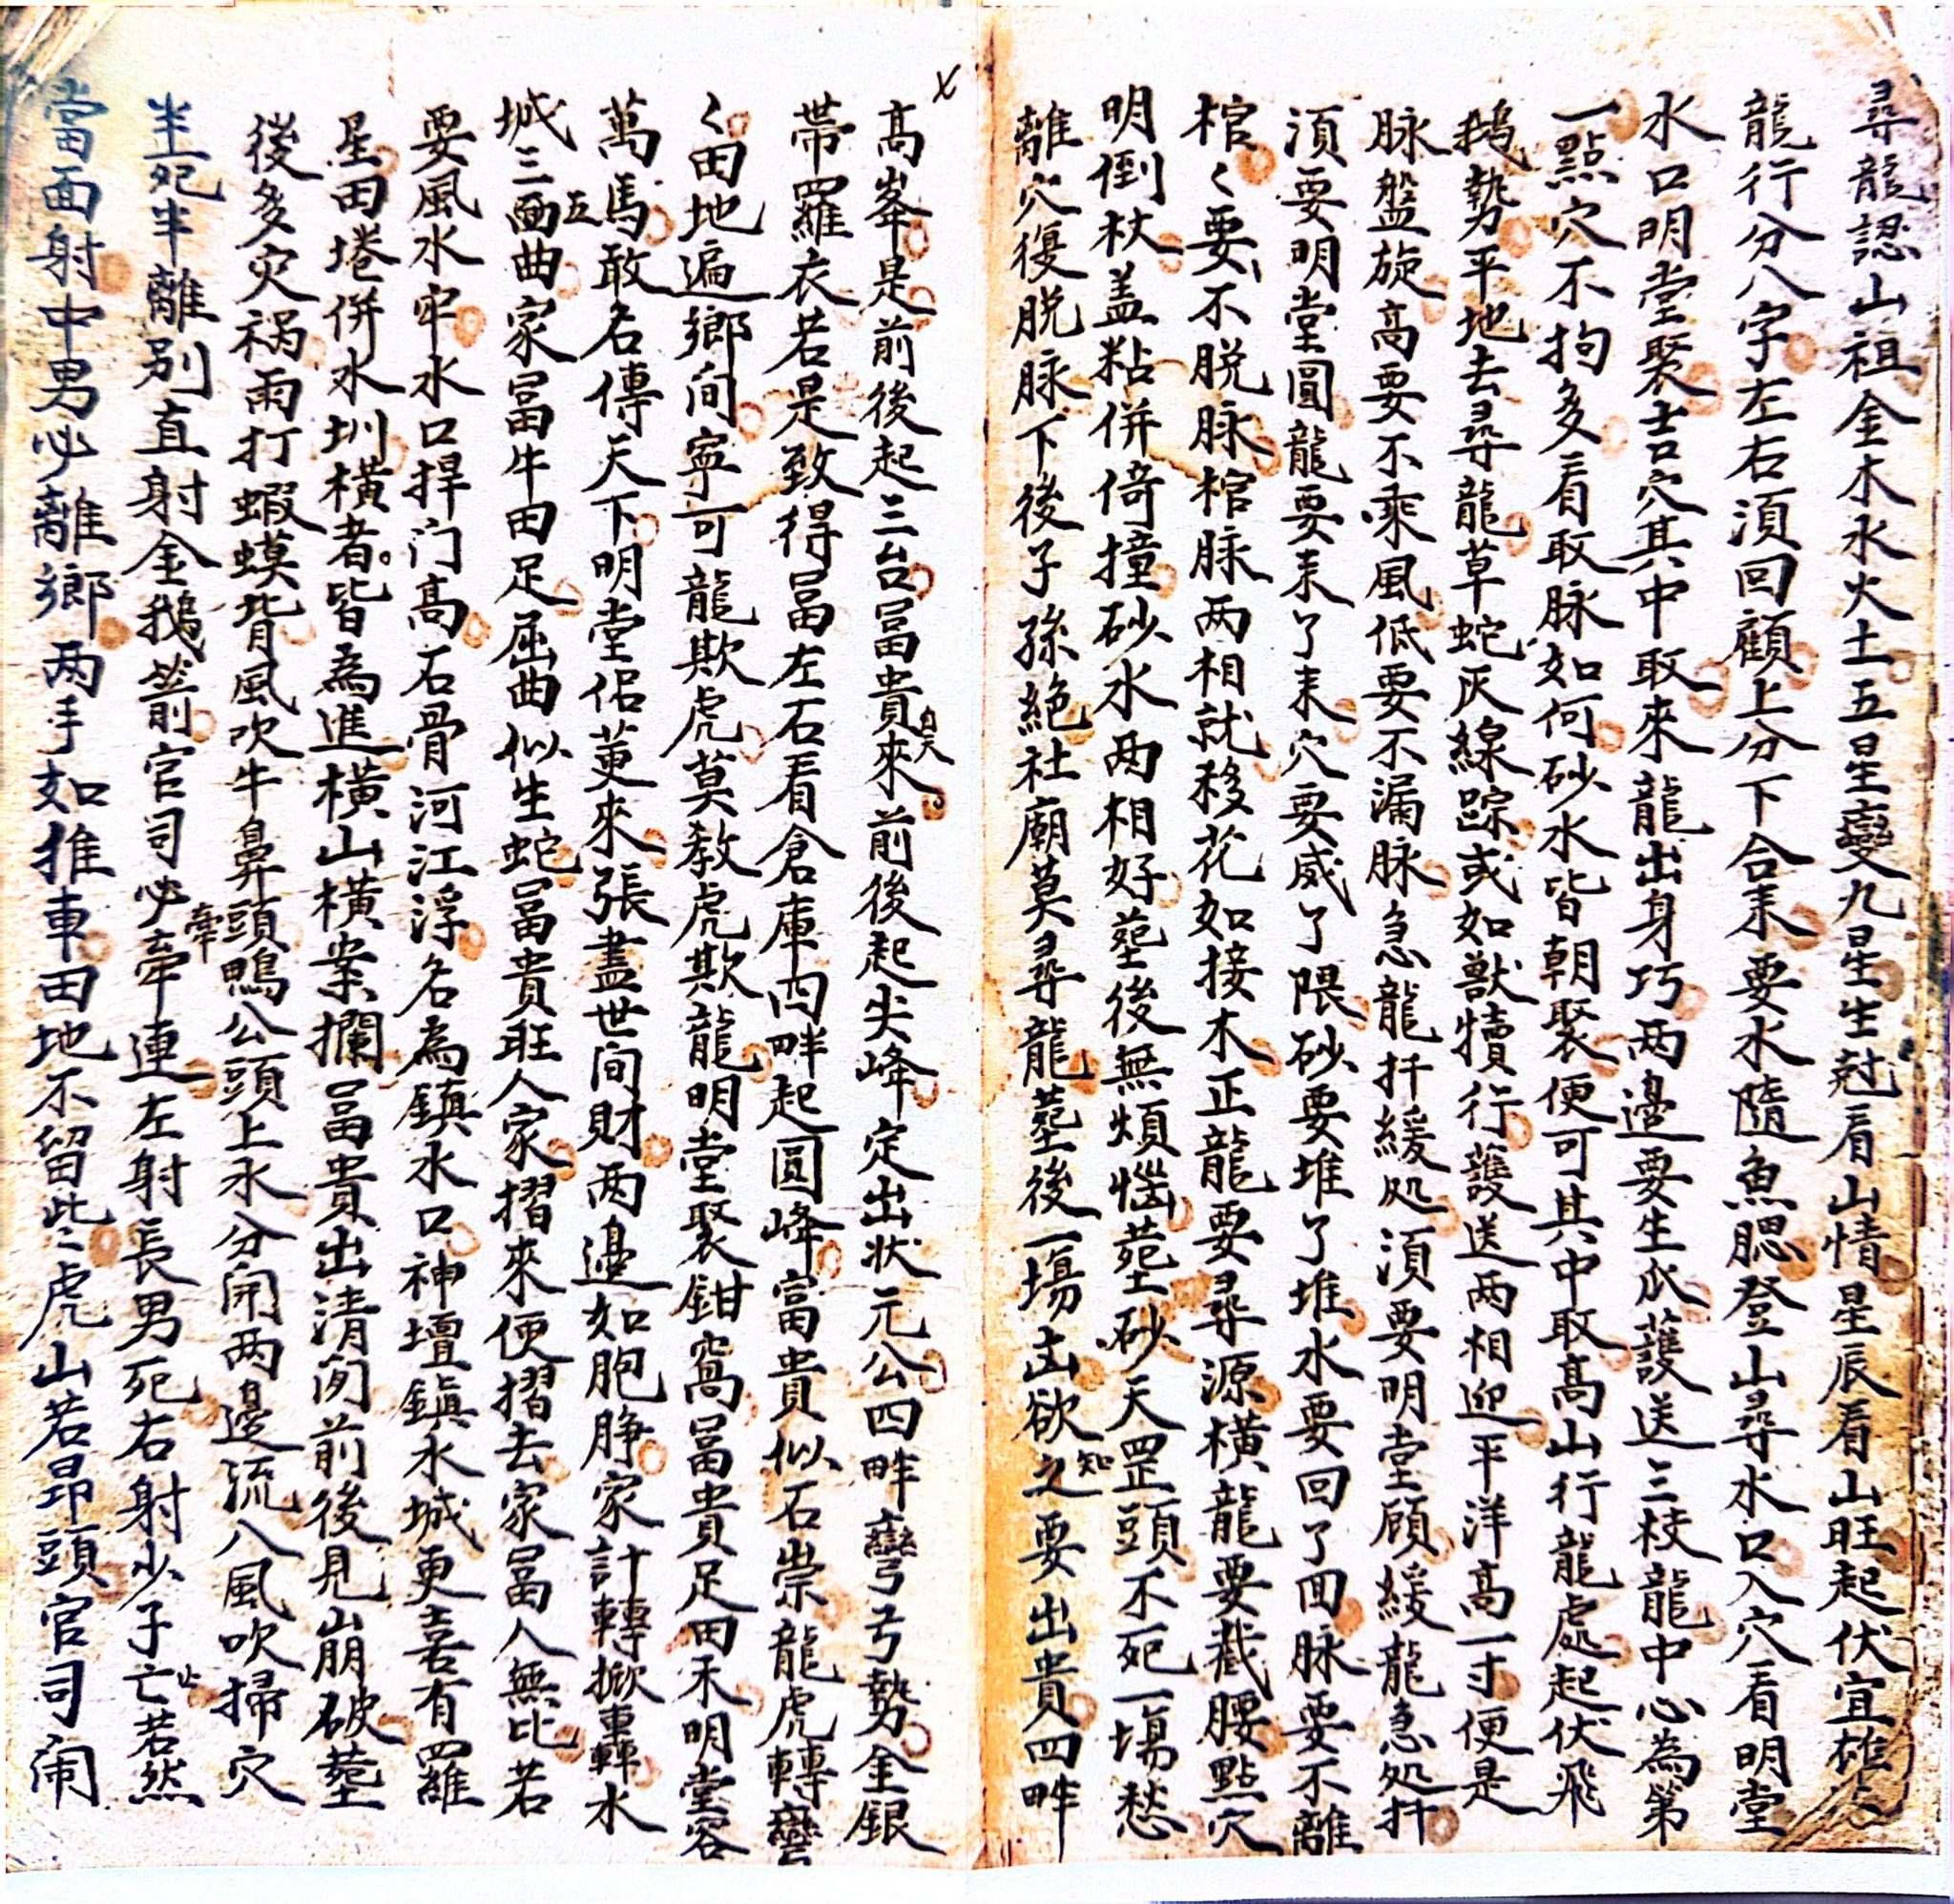 尋龍認山祖金木水火土五星變九星生尅看山情星辰看山旺起伏宜雄
龍行分八字左右湏回顧上分下合耒要水隨魚腮登山尋水口入穴看明堂
水口明堂聚吉穴其中取來龍出身巧两邉要生爪護送三枝龍中心為第
一點穴不拘多看取脉如何砂水皆朝聚便可其中取高山行龍處起伏飛
鵝勢平地去尋龍草蛇灰線踪或如獸犢行護送两相迎平洋高一寸便是
脉盤旋高要不乘風低要不漏脉急龍扦緩処湏要明堂顧緩龍急処扦
湏要明堂圓龍要耒了耒穴要威了隈砂要堆了堆水要回了回脉要不離
棺〻要不脱脉棺脉两相就移花如接木正龍要尋源横龍要截腰點穴
明倒杖盖粘併倚撞砂水两相好塟後無煩惱塟砂天罡頭不死一塲愁
離穴復脱脉下後子孫絶社廟莫尋龍塟後一塲凶欲之知要出貴四畔
高峯是前後起三台冨貴來前後起尖峰定出状元公四畔彎弓勢金銀
帶羅衣若是致得冨左右看倉庫四畔起圓峰富貴似石崇龍虎轉彎
〻田地遍鄉间寧可龍欺虎莫教虎欺龍明堂聚鉗窩冨貴足田禾明堂容
萬馬敢名傳天下明堂佀茰來張盡世间財两邉如胞脝家計轉掀轟水
城三面五曲家冨牛田足屈曲似生蛇冨貴旺人家摺來便摺去家冨人無比若
要風水牢水口捍门高石骨河江浮名為鎮水口神壇鎮水城更喜有羅
星田墘併水圳横者皆為進横山横案攔冨貴出清闲前後見崩破塟
後多灾祸雨打蝦蟆背風吹牛鼻頭鴨公頭上水分開两邉流八風吹掃穴
半死半離别直射金鵝箭官司必牽連左射長男死右射少子亡若然
當面射中男必離鄉两手如推車田地不留些〻虎山若昂頭官司闹